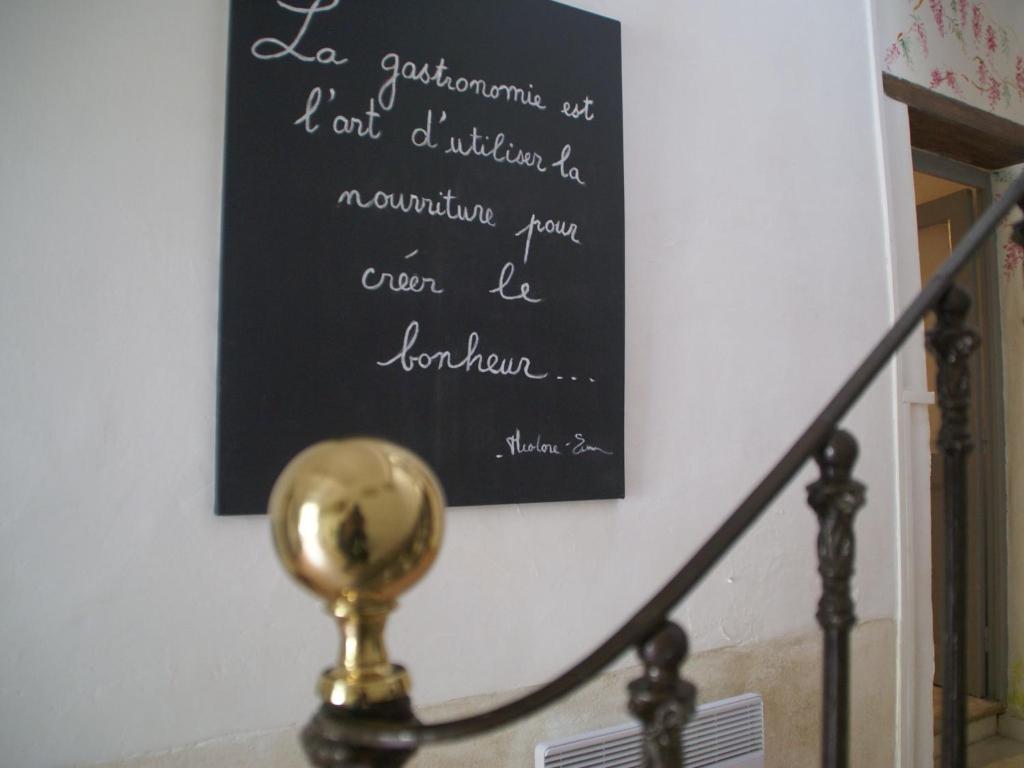 La gastronomie est
l'art d'utiliser la
nourriture pour
créer le
bonheur...